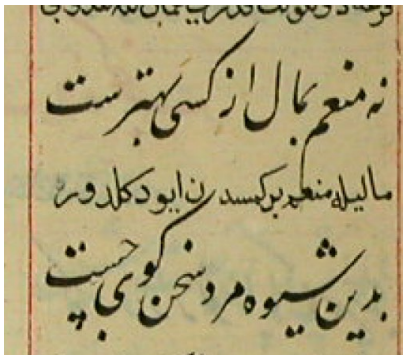 نه منعم بمال از کسی بهترست
مالیله منعم برکمسدن ایو دکلدور
بدین شیوه مرد سخن کوی چست